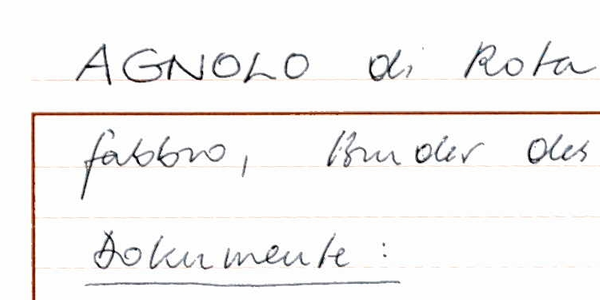 AGNOLO di Rota
fabbro, Bruder des
Dokumente: